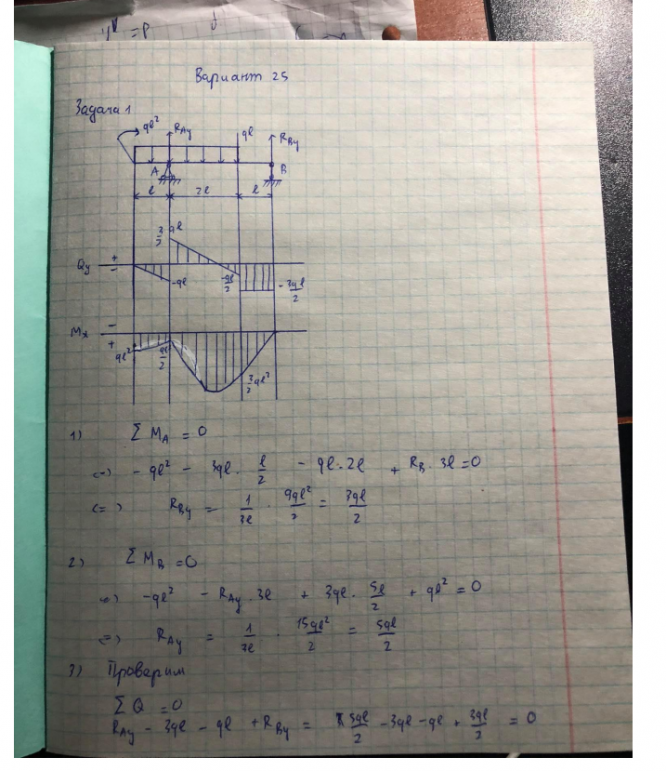 Вариант 25
Задача 1
ql² R_Ay ql R_By
A B
l 2l l
3/2 ql
Qy + − -ql -ql/2 -3ql/2
Mx − + ql² ql/2 3/2 ql²
1) Σ M_A = 0
(=) - ql² - 3ql · l/2 - ql · 2l + R_B · 3l = 0
(=) R_By = 1/3l · 9ql²/2 = 3ql/2
2) Σ M_B = 0
(=) -ql² - R_Ay · 3l + 3ql · 5l/2 + ql² = 0
(=) R_Ay = 1/3l · 15ql²/2 = 5ql/2
3) Проверим
Σ Q = 0
R_Ay - 3ql - ql + R_By = 5ql/2 - 3ql - ql + 3ql/2 = 0